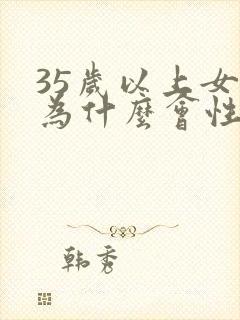 35歲以上女
為什麼會性
韩秀